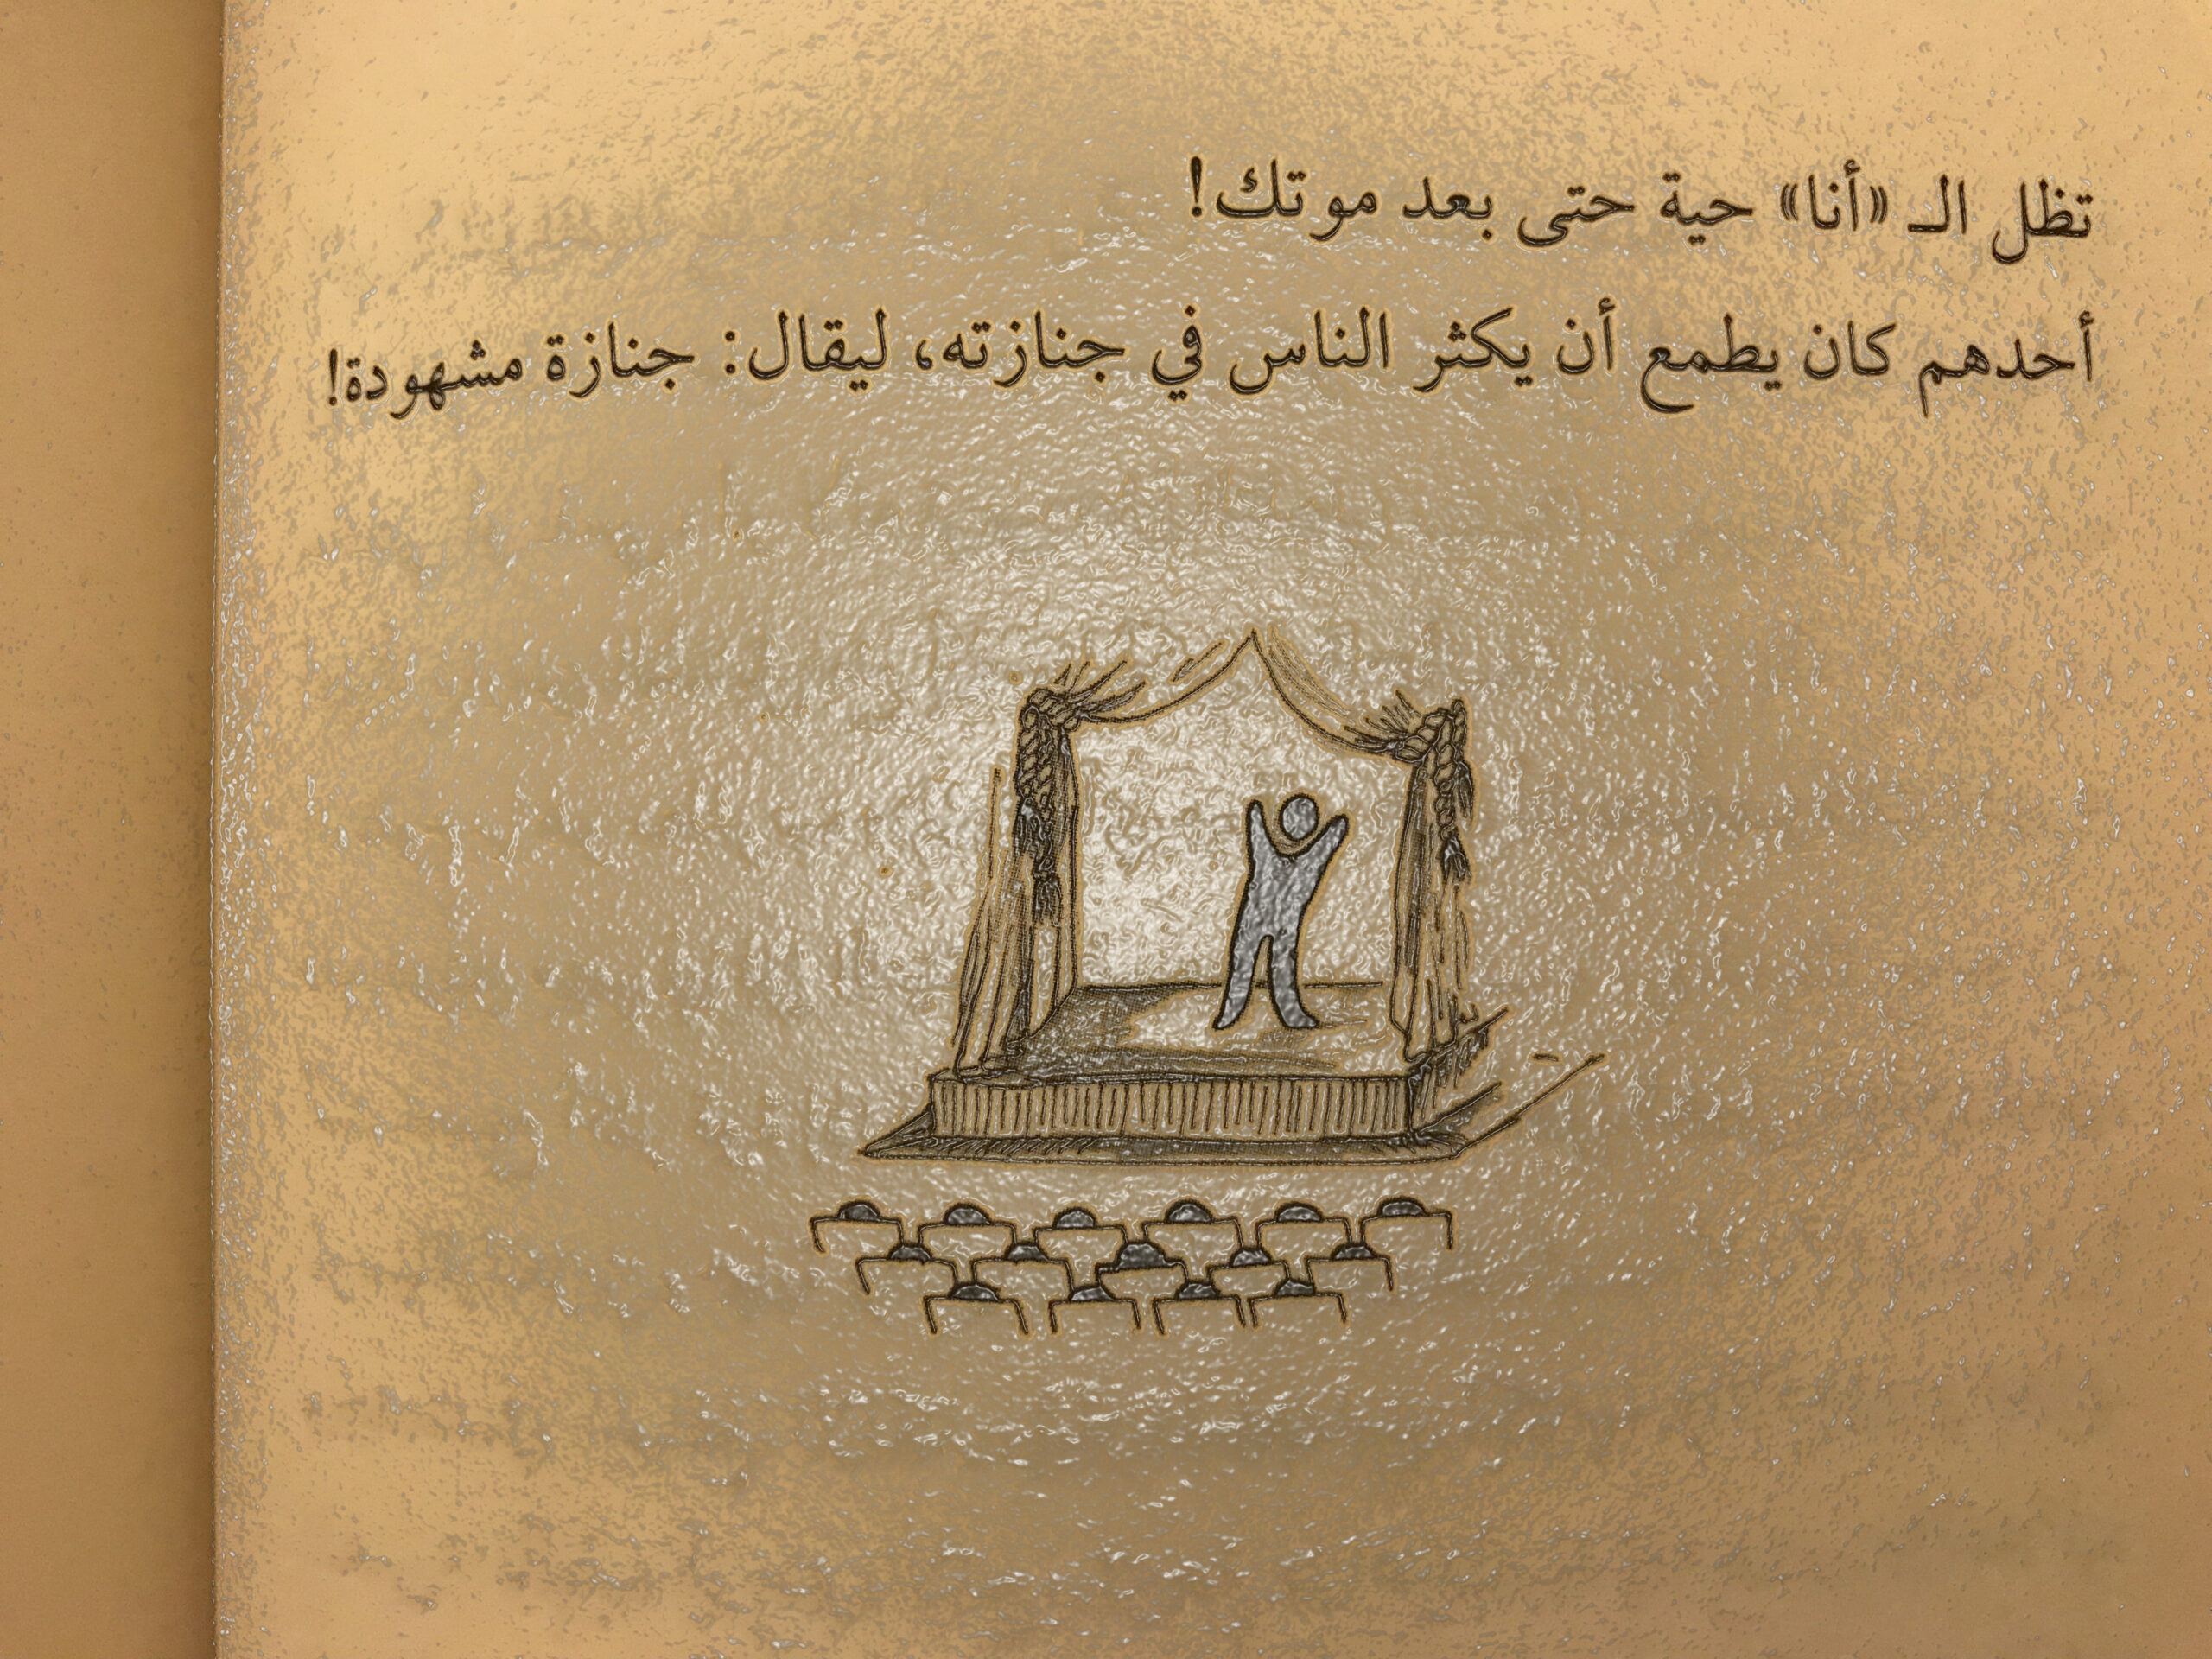 تظل الـ «أنا» حية حتى بعد موتك!
أحدهم كان يطمع أن يكثر الناس في جنازته، ليقال: جنازة مشهودة!